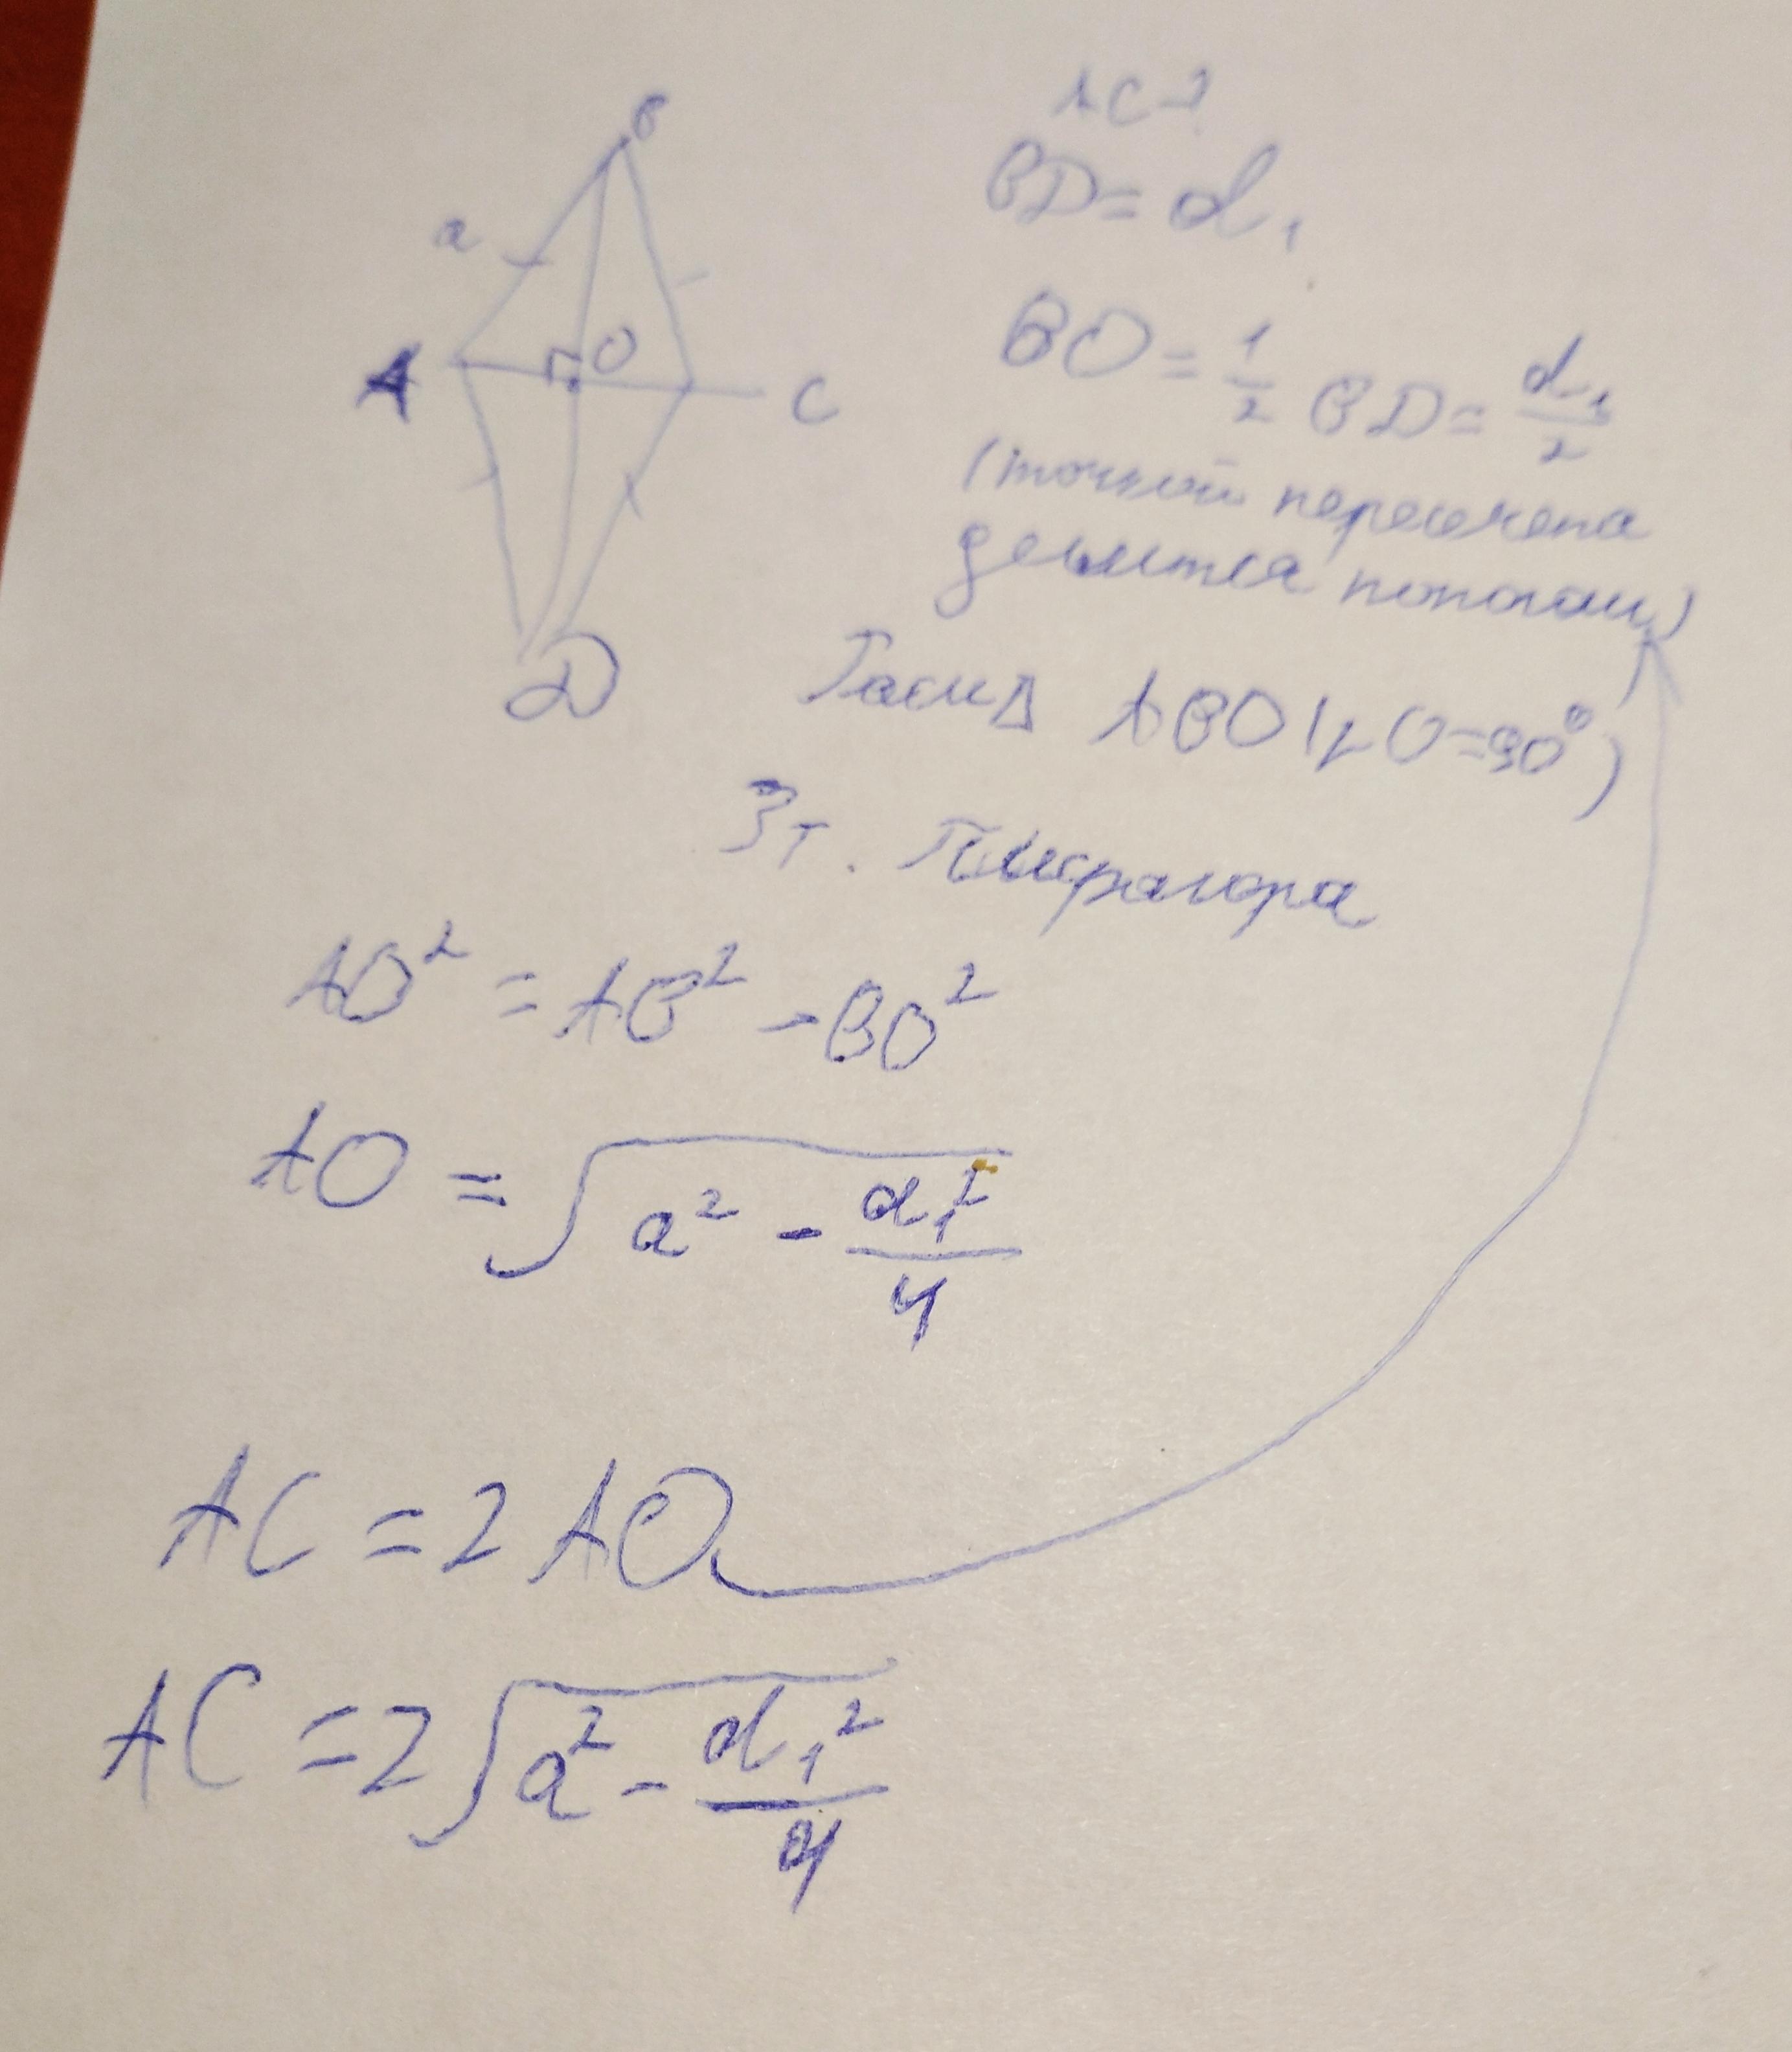 B
a
A
O
C
D
AC-?
BD = d₁
BO = 1/2 BD = d₁/2
(точкой пересечена
делится пополам)
Δ ABO (∠O=90°)
З т. Піфагора
AO² = AB² - BO²
AO = √(a² - d₁²/4)
AC = 2AO
AC = 2√(a² - d₁²/4)